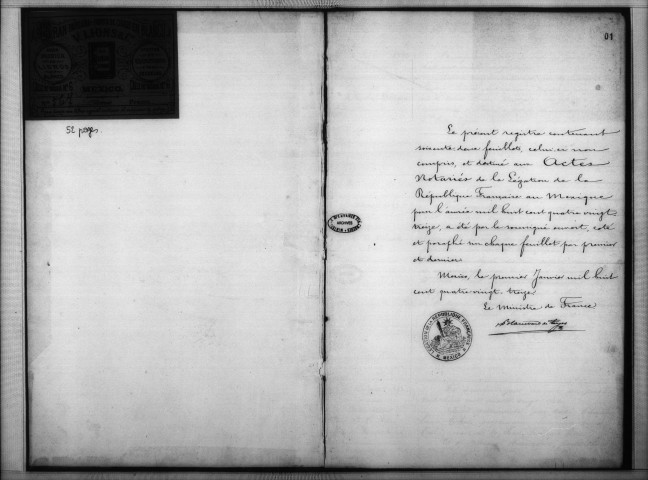 MEXICO
52 pages
01
Le présent registre contenant
soixante-deux feuillets, celui-ci non
compris, est destiné aux Actes
Notariés de la Légation de la
République Française au Mexique
pour l'année mil huit cent quatre vingt
treize, a été par le soussigné ouvert, coté
et paraphé sur chaque feuillet par premier
et dernier
Mexico, le premier Janvier mil huit
cent quatre-vingt treize
Le Ministre de France
LÉGATION DE LA RÉPUBLIQUE FRANÇAISE
MEXICO
ARCHIVES